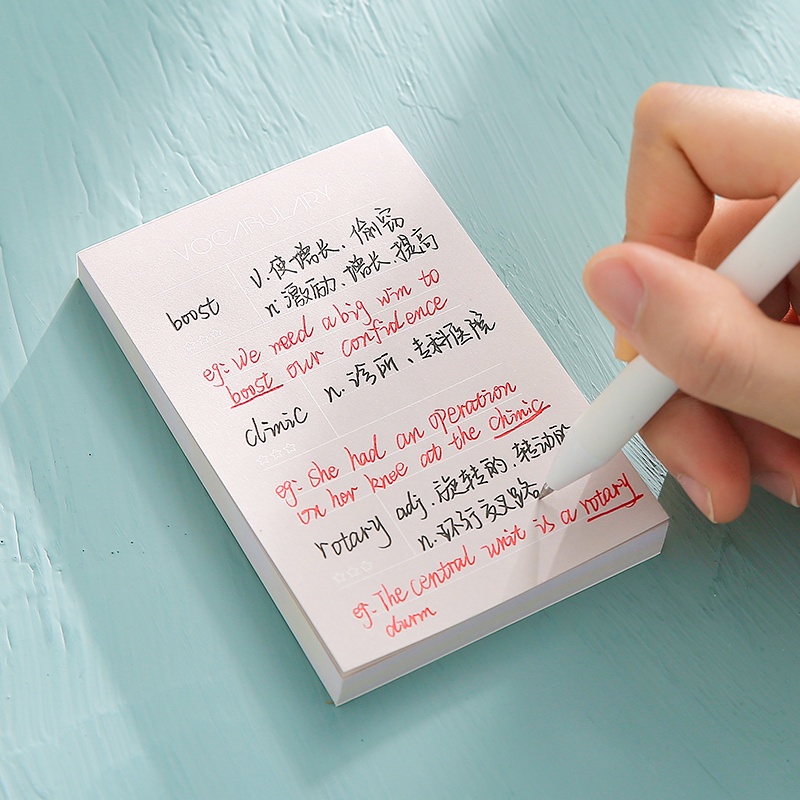 VOCABULARY
boost v.使增长、偷窃
n.激励、增长、提高
eg: We need a big wim to
boost our confidence
climic n.诊所、专科医院
eg: She had an operation
on her knee at the chimic
rotary adj.旋转的、转动的
n.环行交叉路
eg: The central unit is a rotary
durm